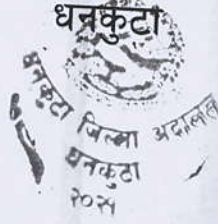 धनकुटा
धनकुटा जिल्ला अदालत
धनकुटा